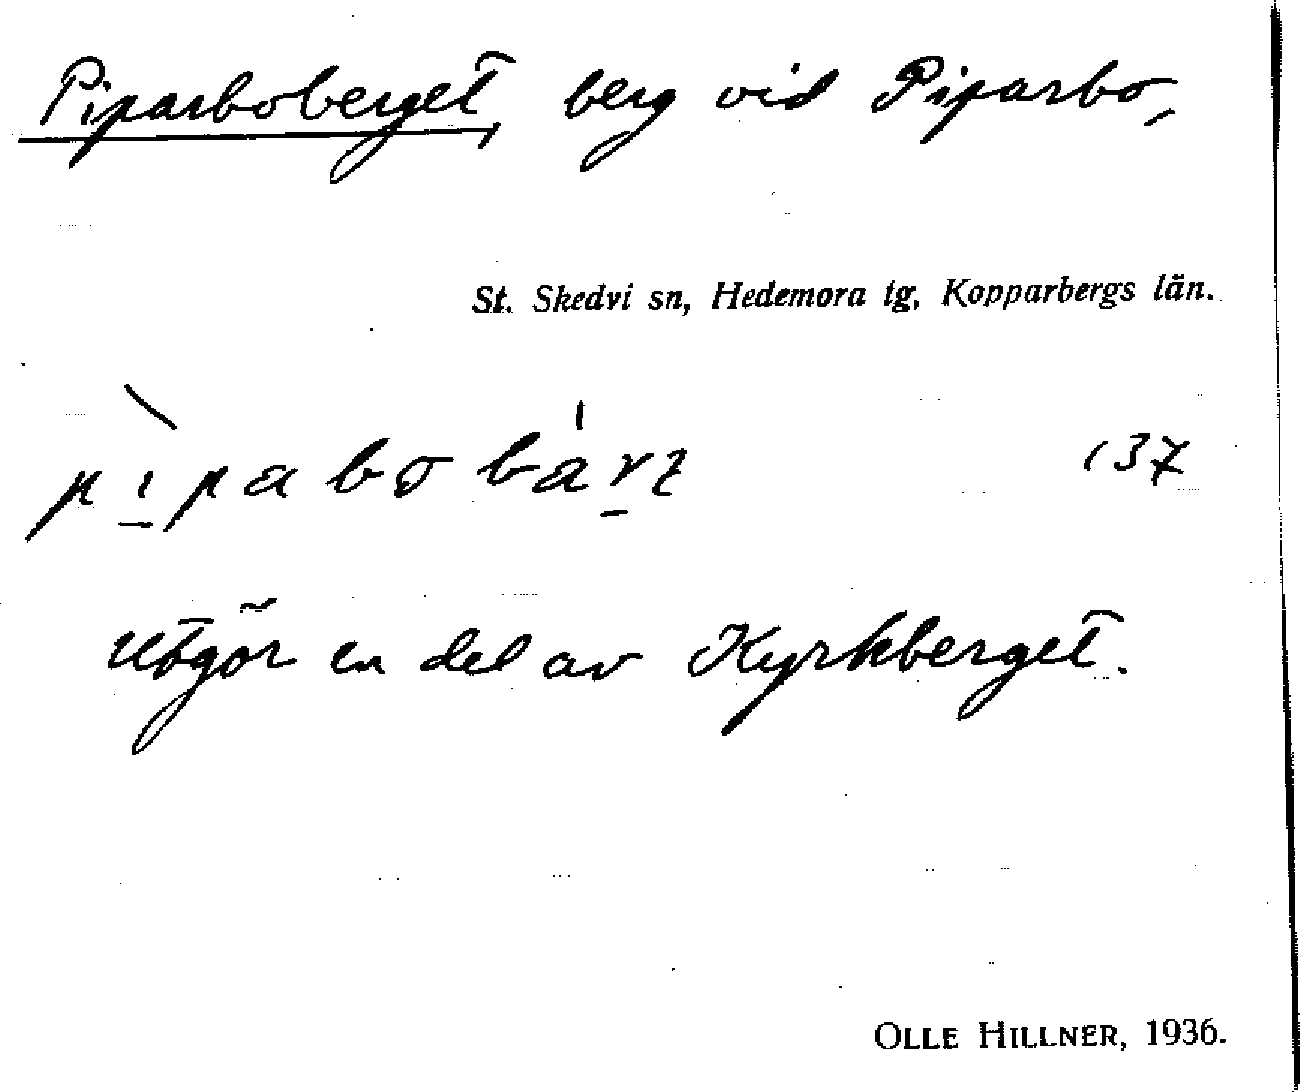 Piparboberget, berg vid Piparbo,
St. Skedvi sn, Hedemora tg, Kopparbergs län.
137
Utgör en del av Kyrkberget.
OLLE HILLNER, 1936.